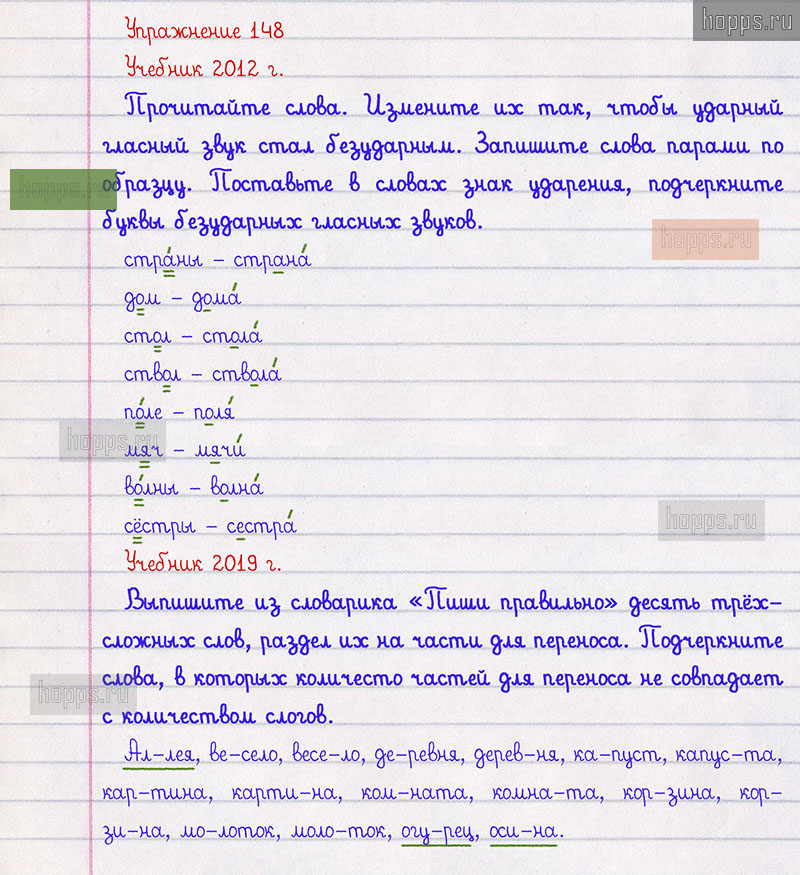 hopps.ru
Упражнение 148
Учебник 2012 г.
Прочитайте слова. Измените их так, чтобы ударный
гласный звук стал безударным. Запишите слова парами по
hopps.ru
образцу. Поставьте в словах знак ударения, подчеркните
буквы безударных гласных звуков.
hopps.ru
стра́ны – страна́
дом – дома́
стол – стола́
ствол – ствола́
по́ле – поля́
hopps.ru
мяч – мячи́
во́лны – волна́
hopps.ru
сёстры – сестра́
Учебник 2019 г.
Выпишите из словарика «Пиши правильно» десять трёх-
сложных слов, раздел их на части для переноса. Подчеркните
hopps.ru
слова, в которых количесто частей для переноса не совпадает
с количеством слогов.
Ал-лея, ве-село, весе-ло, де-ревня, дерев-ня, ка-пуст, капус-та,
кар-тина, карти-на, ком-ната, комна-та, кор-зина, кор-
зи-на, мо-лоток, моло-ток, огу-рец, оси-на.